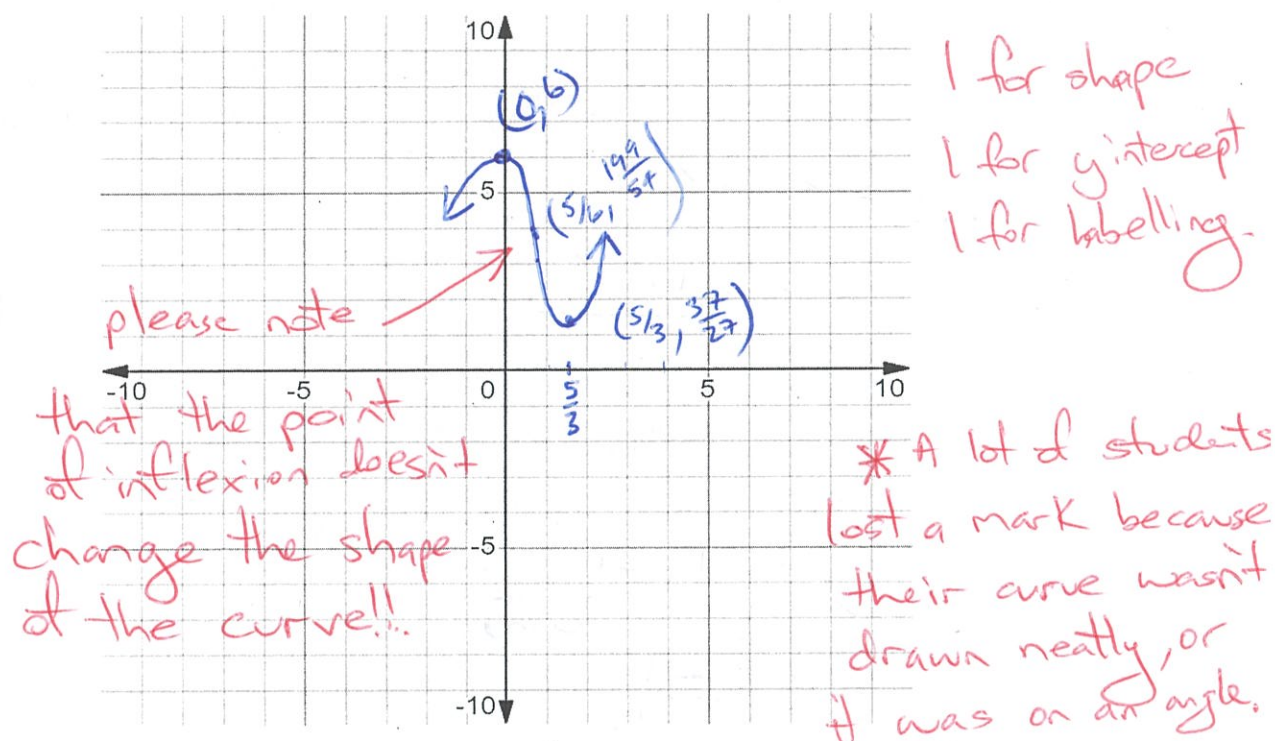 10
(0,6)
5
(5/6, 199/54)
(5/3, 37/27)
-10
-5
0
5
10
5/3
-5
-10
1 for shape
1 for y intercept
1 for labelling.
please note
that the point
of inflexion doesn't
change the shape
of the curve!!.
* A lot of students
lost a mark because
their curve wasn't
drawn neatly, or
it was on an angle.